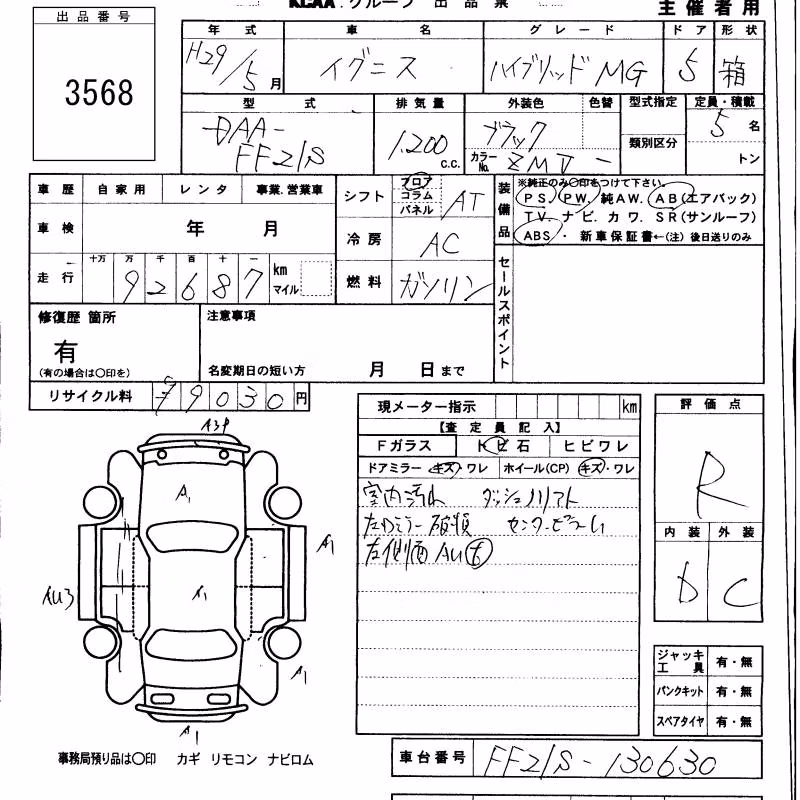 KCAA グループ 出品票
主催者用
出品番号
3568
年式 車名 グレード ドア 形状
H29/5月 イグニス ハイブリッドMG 5 箱
型式 排気量 外装色 色替 型式指定 定員・積載
DAA-FF21S 1,200 c.c. ブラック 5名
カラーNo. ZMV 類別区分 トン
車歴 自家用 レンタ 事業.営業車
車検 年 月
走行 十万 万 千 百 十 一
92687 km マイル
シフト フロア コラム パネル AT
冷房 AC
燃料 ガソリン
装備品
※純正のみ〇印をつけて下さい。
PS. PW. 純AW. AB(エアバック)
TV. ナビ. カワ. SR(サンルーフ)
ABS. ・新車保証書←(注)後日送りのみ
セールスポイント
修復歴 箇所
有
(有の場合は〇印を)
注意事項
名変期日の短い方 月 日まで
リサイクル料 9030円
現メーター指示 km
【査定員記入】
Fガラス トビ石 ヒビワレ
ドアミラー キズ・ワレ ホイール(CP) キズ・ワレ
室内汚れ ダッシュノリアト
左ドアミラー破損
左側面 AU大
評価点
R
内装 外装
D C
A3P
A1
A1
A1
AU3
A1
A1
ジャッキ工具 有・無
パンクキット 有・無
スペアタイヤ 有・無
事務局預り品は〇印 カギ リモコン ナビロム
車台番号 FF21S-130630